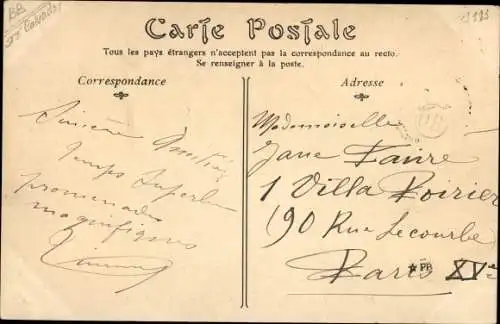 Carte Postale
Tous les pays étrangers n'acceptent pas la correspondance au recto.
Se renseigner à la poste.
Correspondance
Adresse
Sincère Amitié
temps superbe
promenades
magnifiques
Mademoiselle
Jane Favre
1 Villa Poirier
90 Rue Lecourbe
Paris XVe